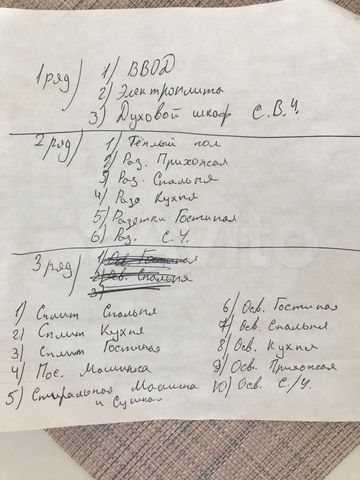 1 ряд) 1) ВВОД
2) Электроплита
3) Духовой шкаф С.В.Ч.
2 ряд) 1) Тёплый пол
2) Роз. Прихожая
3) Роз. Спальня
4) Роз. Кухня
5) Розетки Гостиная
6) Роз. С.У.
3 ряд) 1) Осв. Гостиная
2) Осв. Спальня
3)
1) Сплит Спальня
2) Сплит Кухня
3) Сплит Гостиная
4) Пос. Машинка
5) Стиральная Машина
и Сушка
6) Осв. Гостиная
7) Осв. Спальня
8) Осв. Кухня
9) Осв. Прихожая
10) Осв. С/У.